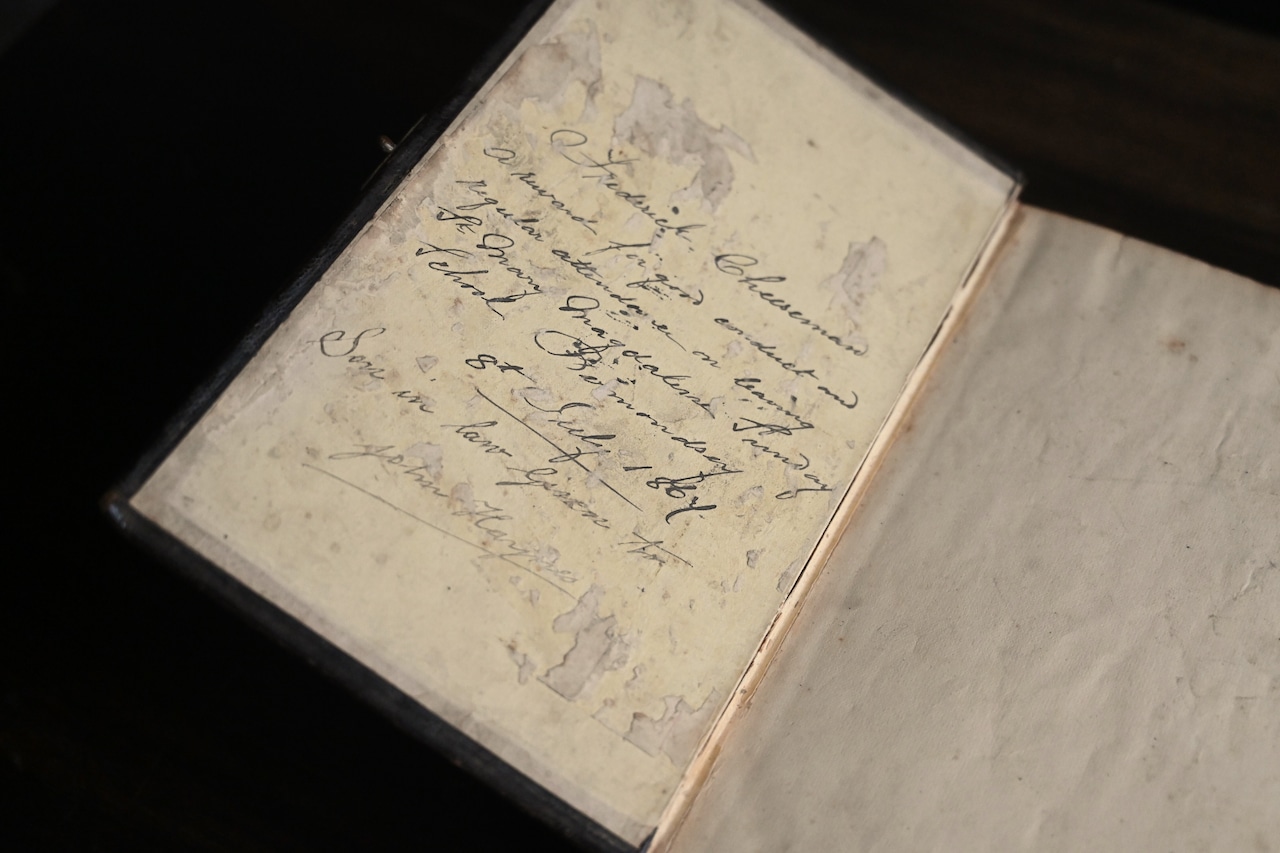 Frederick Cheeseman
a reward for good conduct and
regular attendance on leaving
St Mary Magdalene Sunday
School Bermondsey
8th July 1864.
Son in law Green to
John Haynes